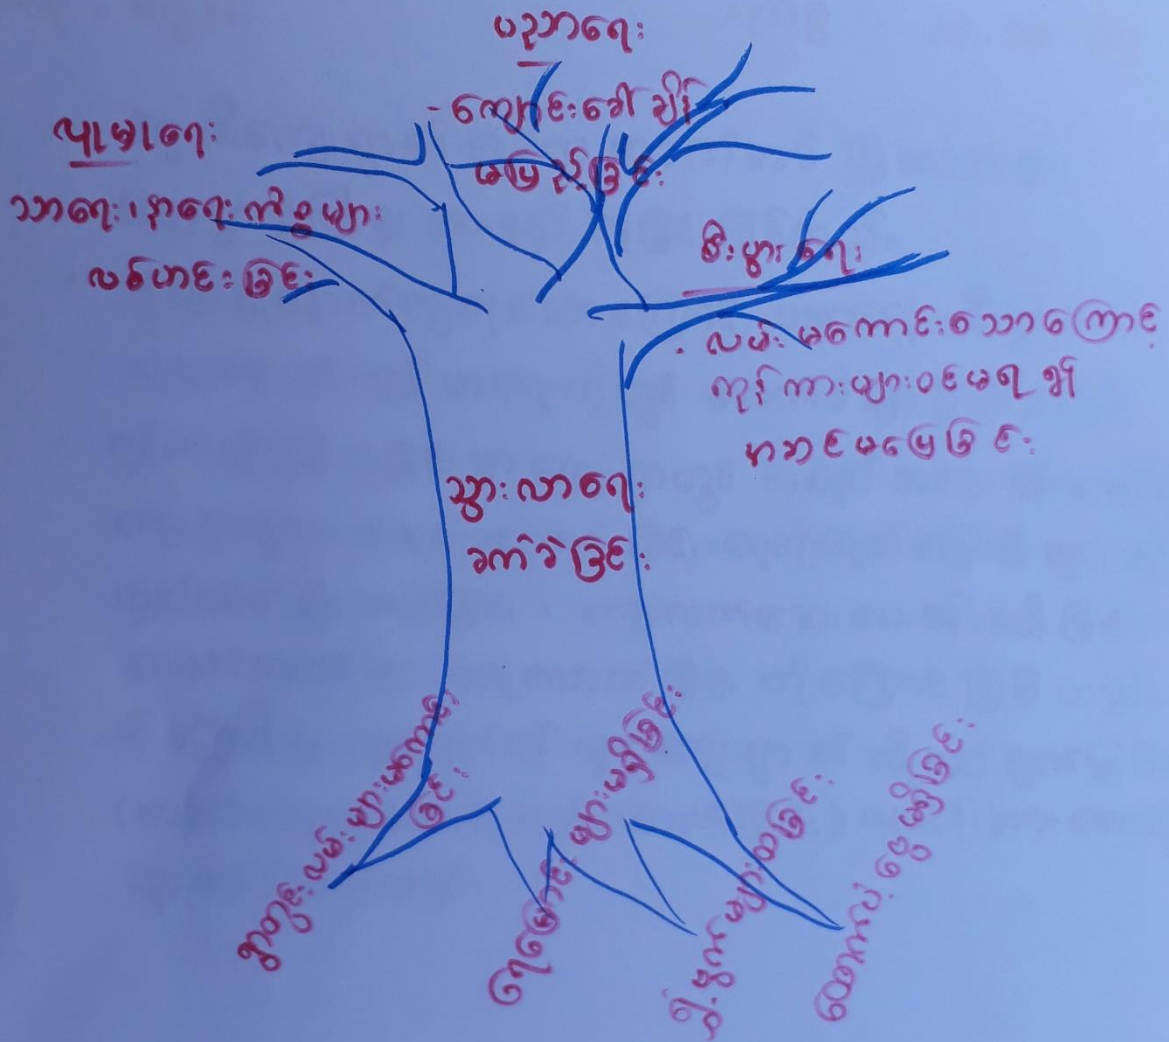 ပညာရေး
- ကျောင်းခေါ်ချိန်
မပြည့်ခြင်း
လူမှုရေး
သာရေး၊ နာရေးကိစ္စများ
လစ်ဟင်းခြင်း
စီးပွားရေး
. လမ်းမကောင်းသောကြောင့်
ကုန်ကားများဝင်မရ၍
မပြေခြင်း
သွားလာရေး
ခက်ခဲခြင်း
ရွာတွင်းလမ်းများမကောင်း
ခြင်း
ရေမြောင်းများမရှိခြင်း
ဗွက်များထခြင်း
ထောက်ပံ့ငွေမရှိခြင်း